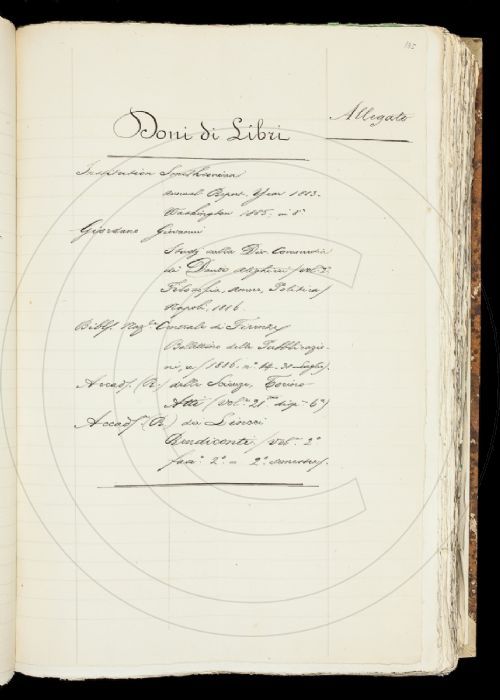 135
Allegato
Doni di Libri
Institution Smithsonian
Annual Report, Year 1883.
Washington 1885, in 8°
Giordano Giovanni
Studj sulla Div. Commedia
di Dante Alighieri (vol. I.
Filosofia, Amore, Politica)
Napoli, 1886.
Bibl. Naz. Centrale di Firenze
Bollettino delle Pubblicazio-
ni, (1886. n. 14. 31 Luglio).
Accad. (R.) delle Scienze, Torino
Atti (vol. 21° disp. 6ª)
Accad. (R.) dei Lincei
Rendiconti (vol. 2°
fasc. 2° 2° semestre).